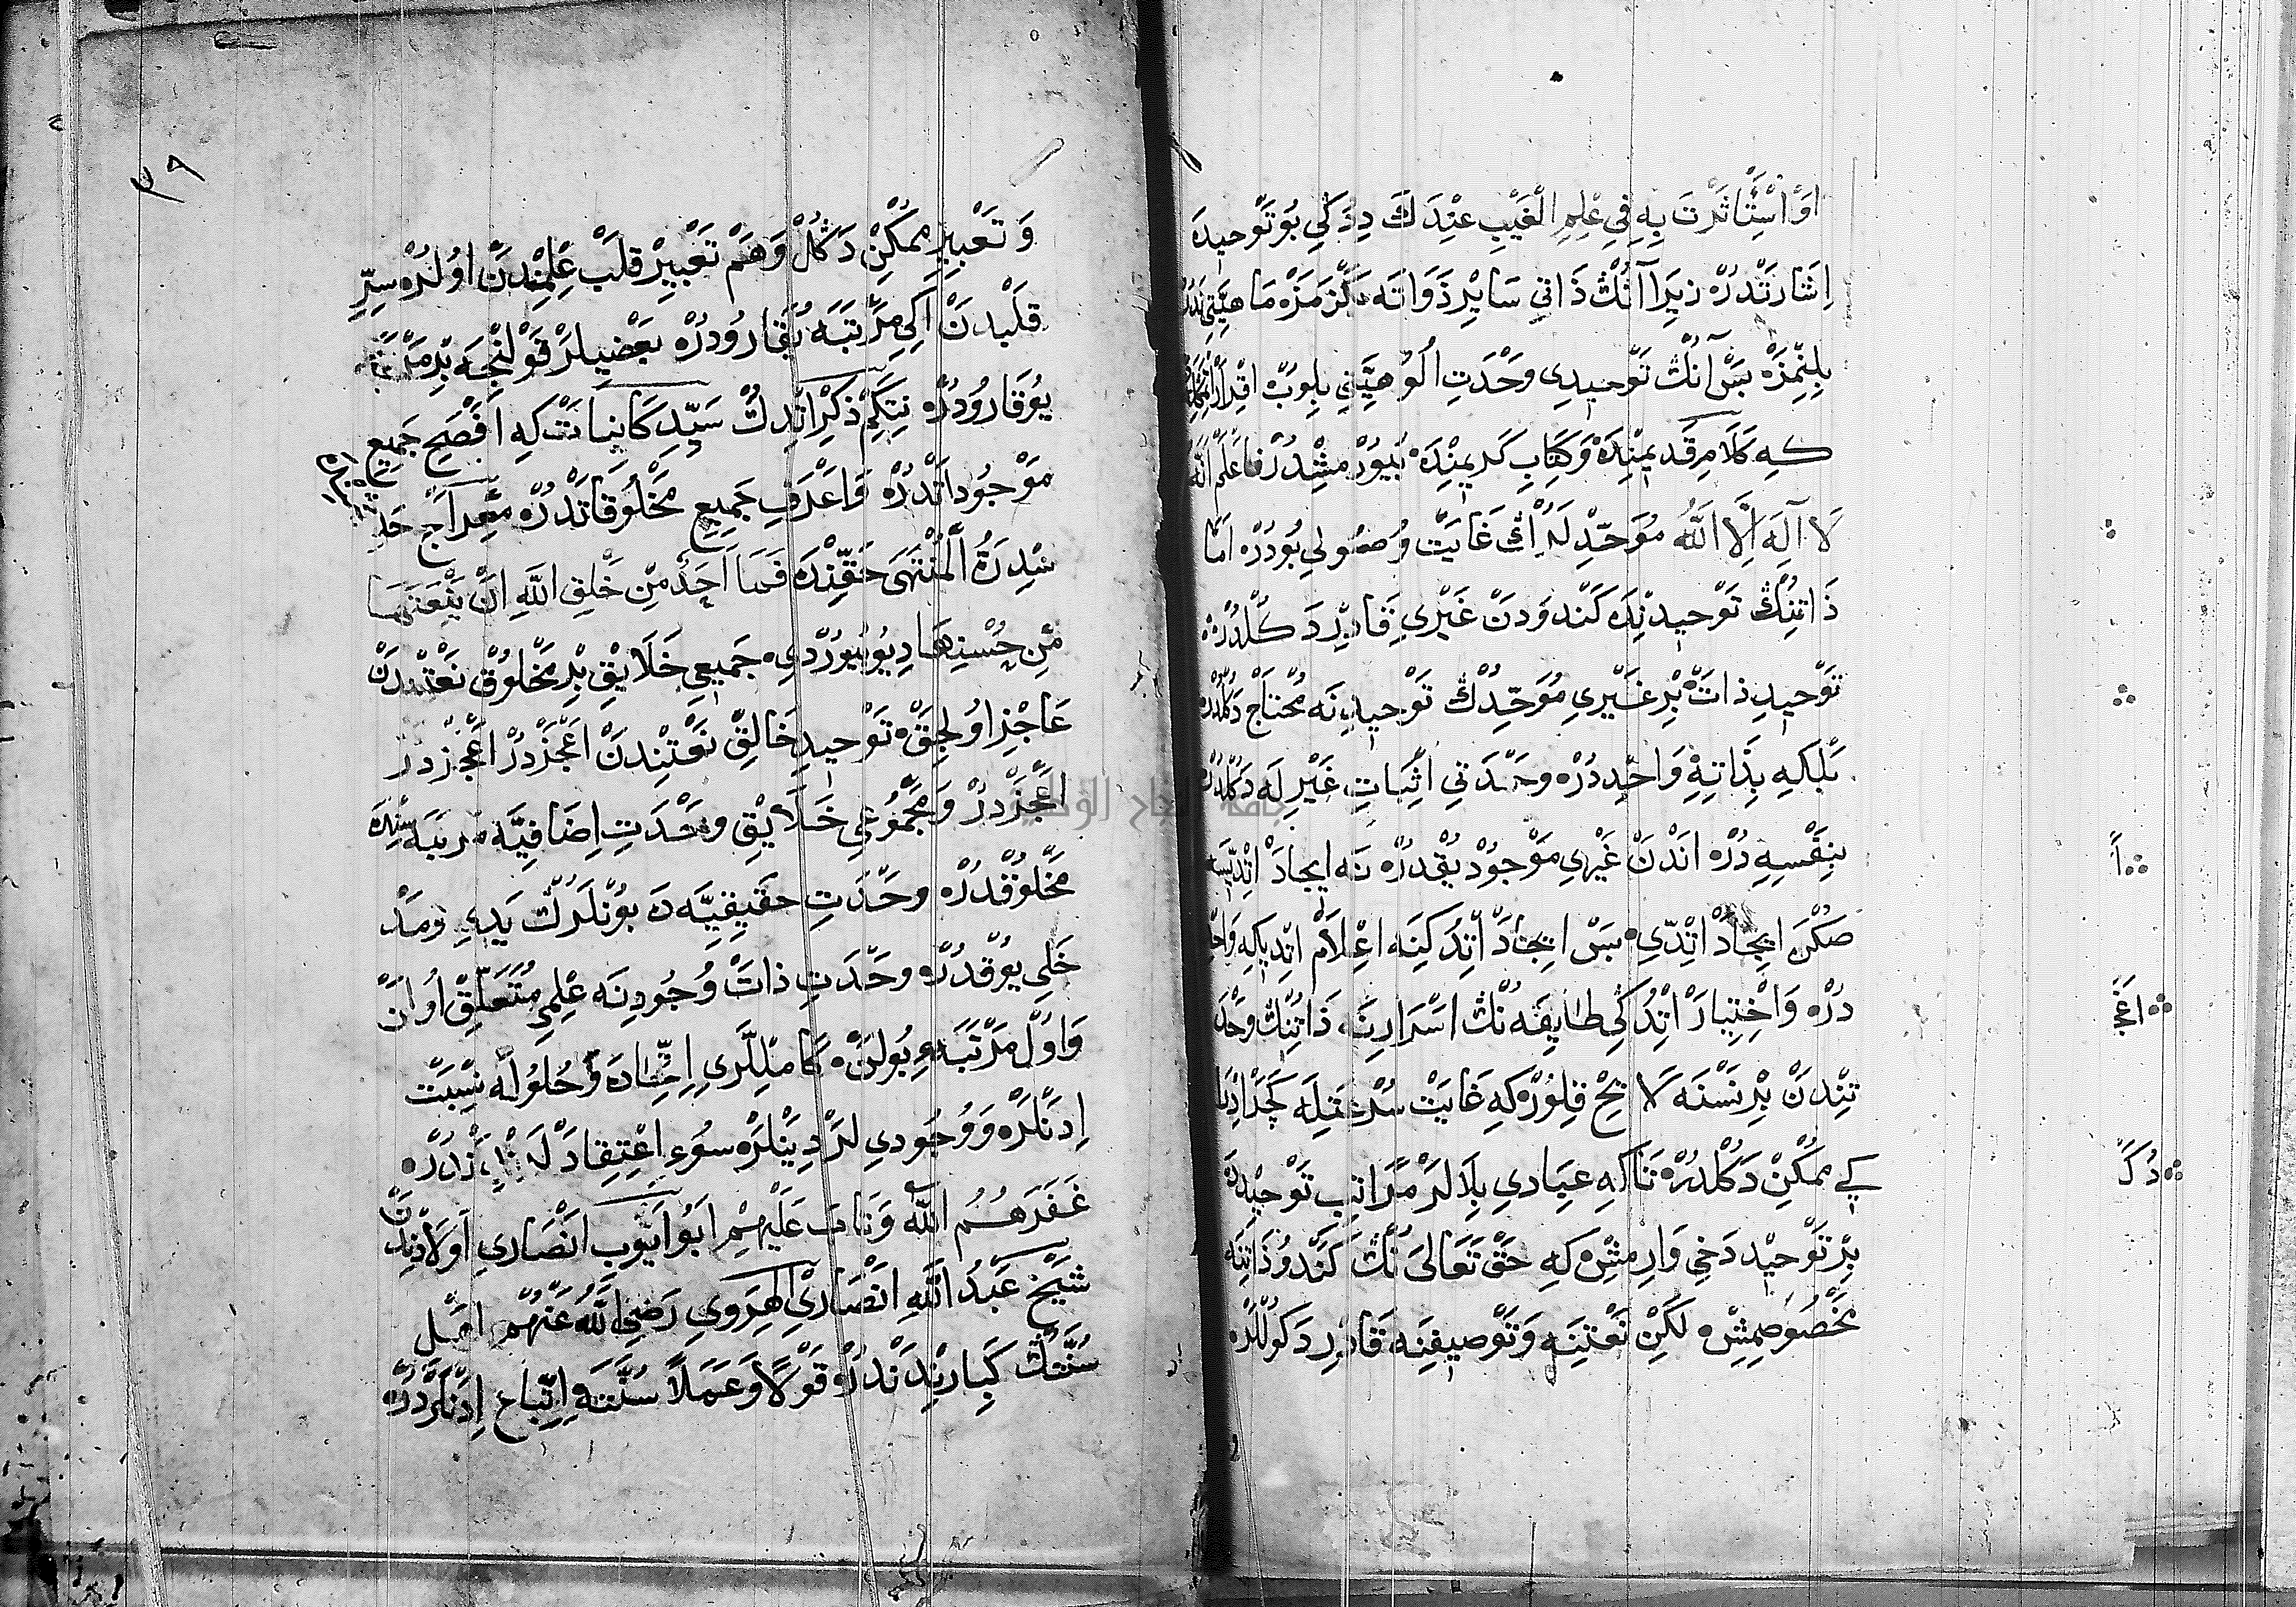 اَوْ اسْتَأْثَرْتَ بِهِ فِي عِلْمِ الْغَيْبِ عِنْدَكَ دِدُكِي بُو تَوْحِيدَه
اِشَارَتْدُرْ زِيرَا آنُڭ ذَاتِي سَايِرْ ذَوَاتَه بَڭْزَمَزْ مَاهِيَّتِي
بِلِنْمَزْ بَسْ آنُڭ تَوْحِيدِي وَحْدَتِ اُلُوهِيَّتِنِي بِلُوبْ
كِه كَلَامِ قَدِيمِنْدَه وَكِتَابِ كَرِيمِنْدَه بُيُورْمِشْدُرْ فَاعْلَمْ اَنَّهُ
لَا اِلَهَ اِلَّا اللّٰه مُوَحِّدْلَرُڭ غَايَتْ وُصُولِي بُودُرْ اَمَّا
ذَاتِنُڭ تَوْحِيدِنْدَه كَنْدُودَنْ غَيْرِي قَادِرْ دَكُلْدُرْ
تَوْحِيدِ ذَاتْ بِرْ غَيْرِي مُوَحِّدُڭ تَوْحِيدِنَه مُحْتَاجْ دَكُلْدُرْ
بَلْكِه بِذَاتِهِ وَاحِدْدُرْ وَحْدَتِي اِثْبَاتِ غَيْرِلَه دَكُلْدُرْ
بِنَفْسِهِ دُرْ اَنْدَنْ غَيْرِي مَوْجُودْ يُقْدُرْ نَه اِيجَادْ اِتْدِيسَه
صُكْرَه اِيجَادْ اِتْدِي بَسْ اِيجَادْ اِتْدُكِنَه اِعْلَامْ اِتْدِي كِه وَاحِدْ
دُرْ وَاخْتِيَارْ اِتْدُكِي طَايِفَه نُڭ اَسْرَارِنَه ذَاتِنُڭ وَحْدَ
تِنْدَنْ بِرْ نَسْنَه لَايِحْ قِلُورْ كِه غَايَتْ سُرْعَتِيلَه كَچَرْ
كِي مُمْكِنْ دَكُلْدُرْ تَاكِه عِبَادِي بِلَالَرْ مَرَاتِبِ تَوْحِيدْدَه
بِرْ تَوْحِيدْ دَخِي وَارِمِشْ كِه حَقْ تَعَالَى نُڭ كَنْدُو ذَاتِنَه
مَخْصُوصِمِشْ لَكِنْ نَعْتِنَه وَتَوْصِيفِنَه قَادِرْ دَكُولْلَرْ
اً
اعَجَ
دُكَ
٣٩
وَتَعْبِيرِ مُمْكِنْ دَكُلْ وَهَمْ تَعْبِيرْ قَلْب عِلْمِنْدَنْ اُولُرْ سِرِّ
قَلْبِدَنْ اَكِي مَرْتَبَه يُقَارُودُرْ بَعْضِيلَرْ قَوْلِنْجَه بِرْ مَرْتَبَه
يُوقَارُودُرْ نِتَكِمْ ذِكْرْ اِتْدِكْ سَيِّدِ كَايِنَاتْ كِه اَفْصَحِ جَمِيعِ
مَوْجُودَاتْدُرْ وَاَعْرَفِ جَمِيعِ مَخْلُوقَاتْدُرْ مِعْرَاجْ حَدِ
سِدْرَةُ الْمُنْتَهَى حَقِّنْدَه فَمَا اَحَدٌ مِنْ خَلْقِ اللّٰهِ اَنْ يَنْعَتَهَا
مِنْ حُسْنِهَا دِيُو بُيُورْدِي جَمِيعِ خَلَايِقْ بِرْ مَخْلُوقْ نَعْتِنْدَنْ
عَاجِزْ اُولِجَقْ تَوْحِيدِ خَالِقْ نَعْتِنْدَنْ اَعْجَزْدُرْ اَعْجَزْدُرْ
اَعْجَزْدُرْ وَمَجْمُوعِ خَلَايِقْ وَحْدَتِ اِضَافِيَّه مَرْتَبَه سِنْدَه
مَخْلُوقْدُرْ وَحْدَتِ حَقِيقِيَّه دَه بُونْلَرُڭ يَدِي وُمَدْ
خَلِي يُوقْدُرْ وَحْدَتِ ذَاتْ وُجُودِنَه عِلْمِي مُتَعَلِّقْ اُولَنْ
وَاُولْ مَرْتَبَه يِ بُولَنْ كَامِلْلَرِي اِتِّحَادَه وَحُلُولَه نِسْبَتْ
اِدَنْلَرْ وَوُجُودِي لَرْ دِيَنْلَرْ سُوءِ اِعْتِقَادْلَه
غَفَرَهُمُ اللّٰه وَتَابَ عَلَيْهِمْ اَبُو اَيُّوبِ اَنْصَارِي اَوْلَادِنْدَنْ
شَيْخْ عَبْدُ اللّٰهِ اَنْصَارِيِّ الْهِرَوِي رَضِيَ اللّٰهُ عَنْهُمْ اَهْلِ
سُنَّتُڭ كِبَارِنْدَنْدُرْ قَوْلًا وَعَمَلًا سُنَّتَه اِتِّبَاعْ اِدَنْلَرْدَنْدُرْ